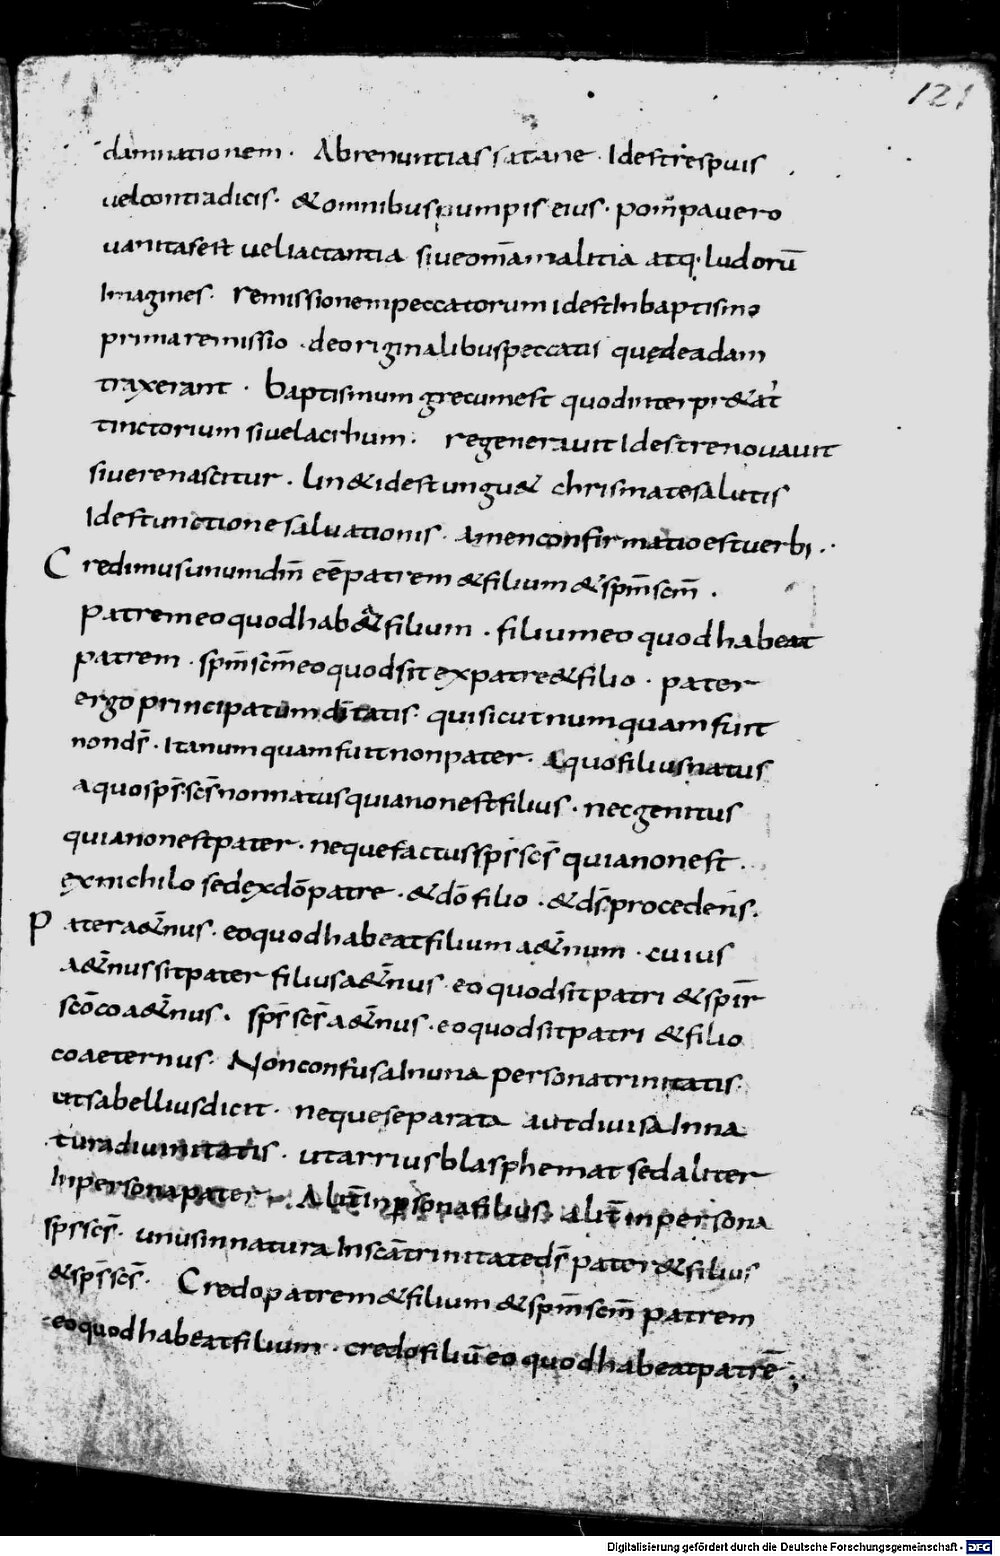 121
damnationem · Abrenuntias satane · Idest respuis
uel contradicis · & omnibus pumpis eius · pompa uero
uanitas est uel iactantia siue om̄a malitia atq· ludorū
Imagines · remissionem peccatorum idest In baptismo
prima remissio · de originalibus peccatis que de adam
traxerant · baptismum grecum est quod interpr&at̉
tinctorium siue lacrhum · regenerauit Idest renouauit
siue renascitur · lin& idest ungu& chrismate salutis
Idest unctione saluationis · amen confirmatio est uerbi ·
Credimus unum dm̄ eē patrem & filium & spm̄ scm̄ ·
patrem eo quod hab& filium · filium eo quod habeat
patrem · spm̄ scm̄ eo quod sit ex patre & filio · pater
ergo principatum dītatis · qui sicut numquam fuit
non ds̄ · Ita numquam fuit non pater · A quo filius natus
a quo sps̄ scs̄ non natus quia non est filius · nec genitus
quia non est pater · neque factus sps̄ scs̄ quia non est ·
ex nichilo sed ex dō patre · & dō filio · & ds̄ procedens ·
Pater a&̄nus · eo quod habeat filium a&̄num · cuius
a&̄nus sit pater filius a&̄nus · eo quod sit patri & spir̄
scō coa&̄nus · sps̄ scs̄ a&̄nus · eo quod sit patri & filio
coaeternus · Non confusa In una persona trinitatis
ut sabellius dicit · neque separata aut diuisa In na
tura diuinitatis · ut arrius blasphemat sed aliter
In persona pater · Alit̄ in ꝑsona filius alit̄ in persona
sps̄ scs̄ · unus in natura In scā trinitate ds̄ pater & filius
& sps̄ scs̄ · Credo patrem & filium & spm̄ scm̄ patrem
eo quod habeat filium · credo filiū eo quod habeat patrē ;
Digitalisierung gefördert durch die Deutsche Forschungsgemeinschaft - DFG